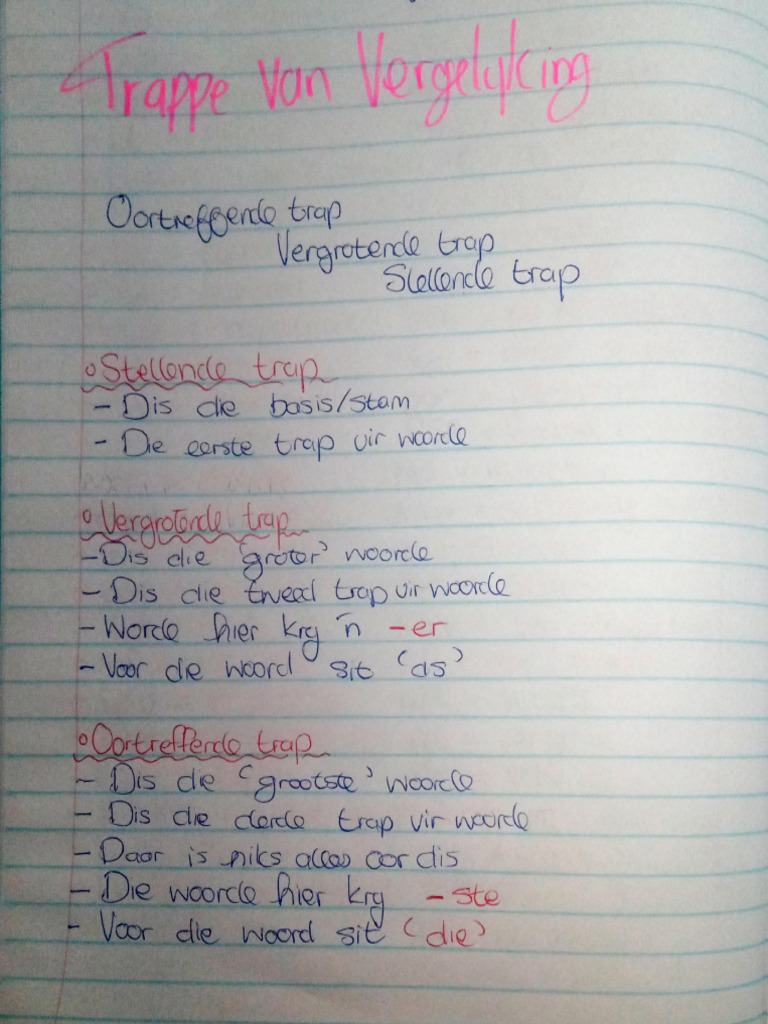 Trappe van Vergelyking
Oortreffende trap
Vergrotende trap
Stellende trap
Stellende trap
- Dis die basis/stam
- Die eerste trap vir woorde
Vergrotende trap
- Dis die 'groter' woorde
- Dis die tweed trap vir woorde
- Worde hier kry 'n -er
- Voor die woord sit 'as'
Oortreffende trap
- Dis die 'grootste' woorde
- Dis die derde trap vir woorde
- Daar is niks oor dis
- Die woorde hier kry -ste
- Voor die woord sit 'die'